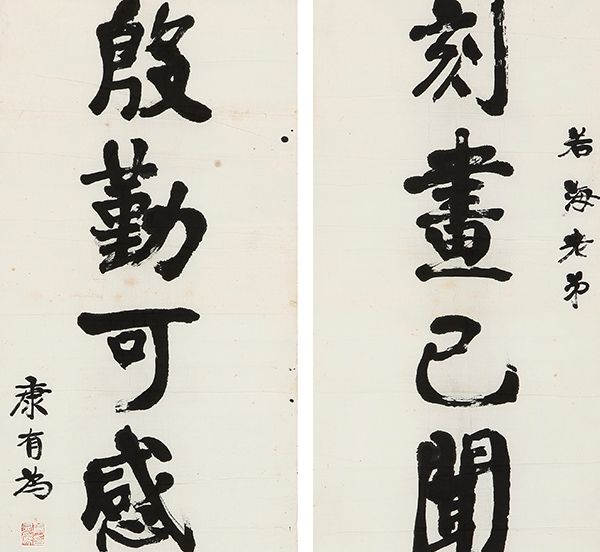 若海老弟
刻畫已聞
殷勤可感
康有為